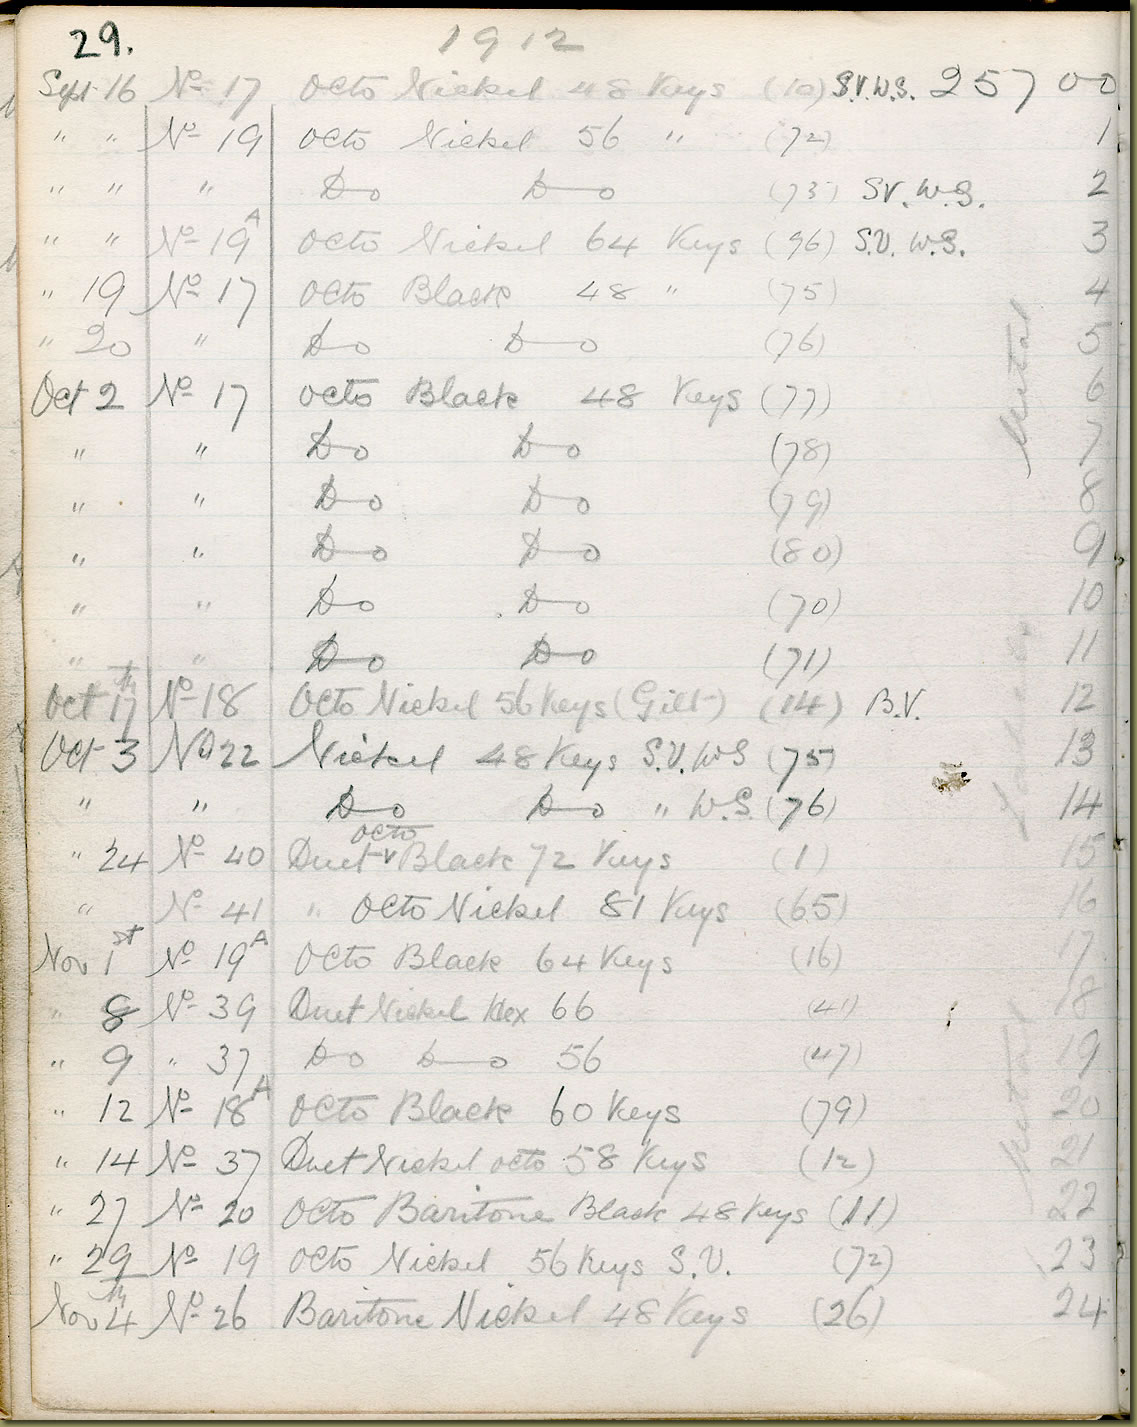 29. 1912
Sept 16 No 17 Octo Nickel 48 Keys (10) S.V.W.S. 25700
" " No 19 Octo Nickel 56 " (72) 1
" " " Do Do (73) SV. W.S. 2
" " No 19A Octo Nickel 64 Keys (96) S.V. W.S. 3
" 19 No 17 Octo Black 48 " (75) 4
" 20 " Do Do (76) 5
Oct 2 No 17 Octo Black 48 Keys (77) 6
" " Do Do (78) 7
" " Do Do (79) 8
" " Do Do (80) 9
" " Do Do (70) 10
" " Do Do (71) 11
Oct 17th No 18 Octo Nickel 56 Keys (Gilt) (14) B.V. 12
Oct 3 No 22 Nickel 48 Keys S.V. W S (75) 13
" " Do Do " W.S. (76) 14
" 24 No 40 Duet Octo Black 72 Keys (1) 15
" No 41 " Octo Nickel 81 Keys (65) 16
Nov 1st No 19A Octo Black 64 Keys (16) 17
" 8 No 39 Duet Nickel Hex 66 (41) 18
" 9 " 37 Do Do 56 (47) 19
" 12 No 18A Octo Black 60 Keys (79) 20
" 14 No 37 Duet Nickel octo 58 Keys (12) 21
" 27 No 20 Octo Baritone Black 48 Keys (11) 22
" 29 No 19 Octo Nickel 56 Keys S.V. (72) 23
Nov 4th No 26 Baritone Nickel 48 Keys (26) 24